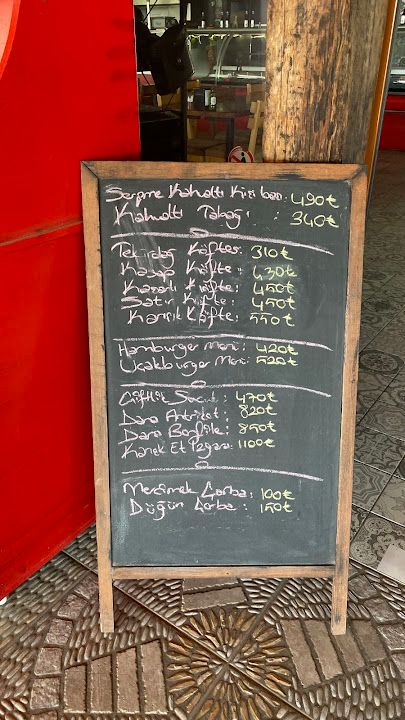 Serpme Kahvaltı Kişi başı: 490₺
Kahvaltı Tabağı : 340₺
Tekirdağ Köftesi: 310₺
Kasap Köfte: 430₺
Kaşarlı Köfte: 450₺
Satır Köfte: 450₺
Karışık Köfte: 550₺
Hamburger Menü: 420₺
Uçakburger Menü: 520₺
Çiftlik Sucuk: 470₺
Dana Antrikot: 820₺
Dana Bonfile: 850₺
Karışık Et Izgara: 1100₺
Mercimek Çorba: 100₺
Düğün Çorba: 150₺